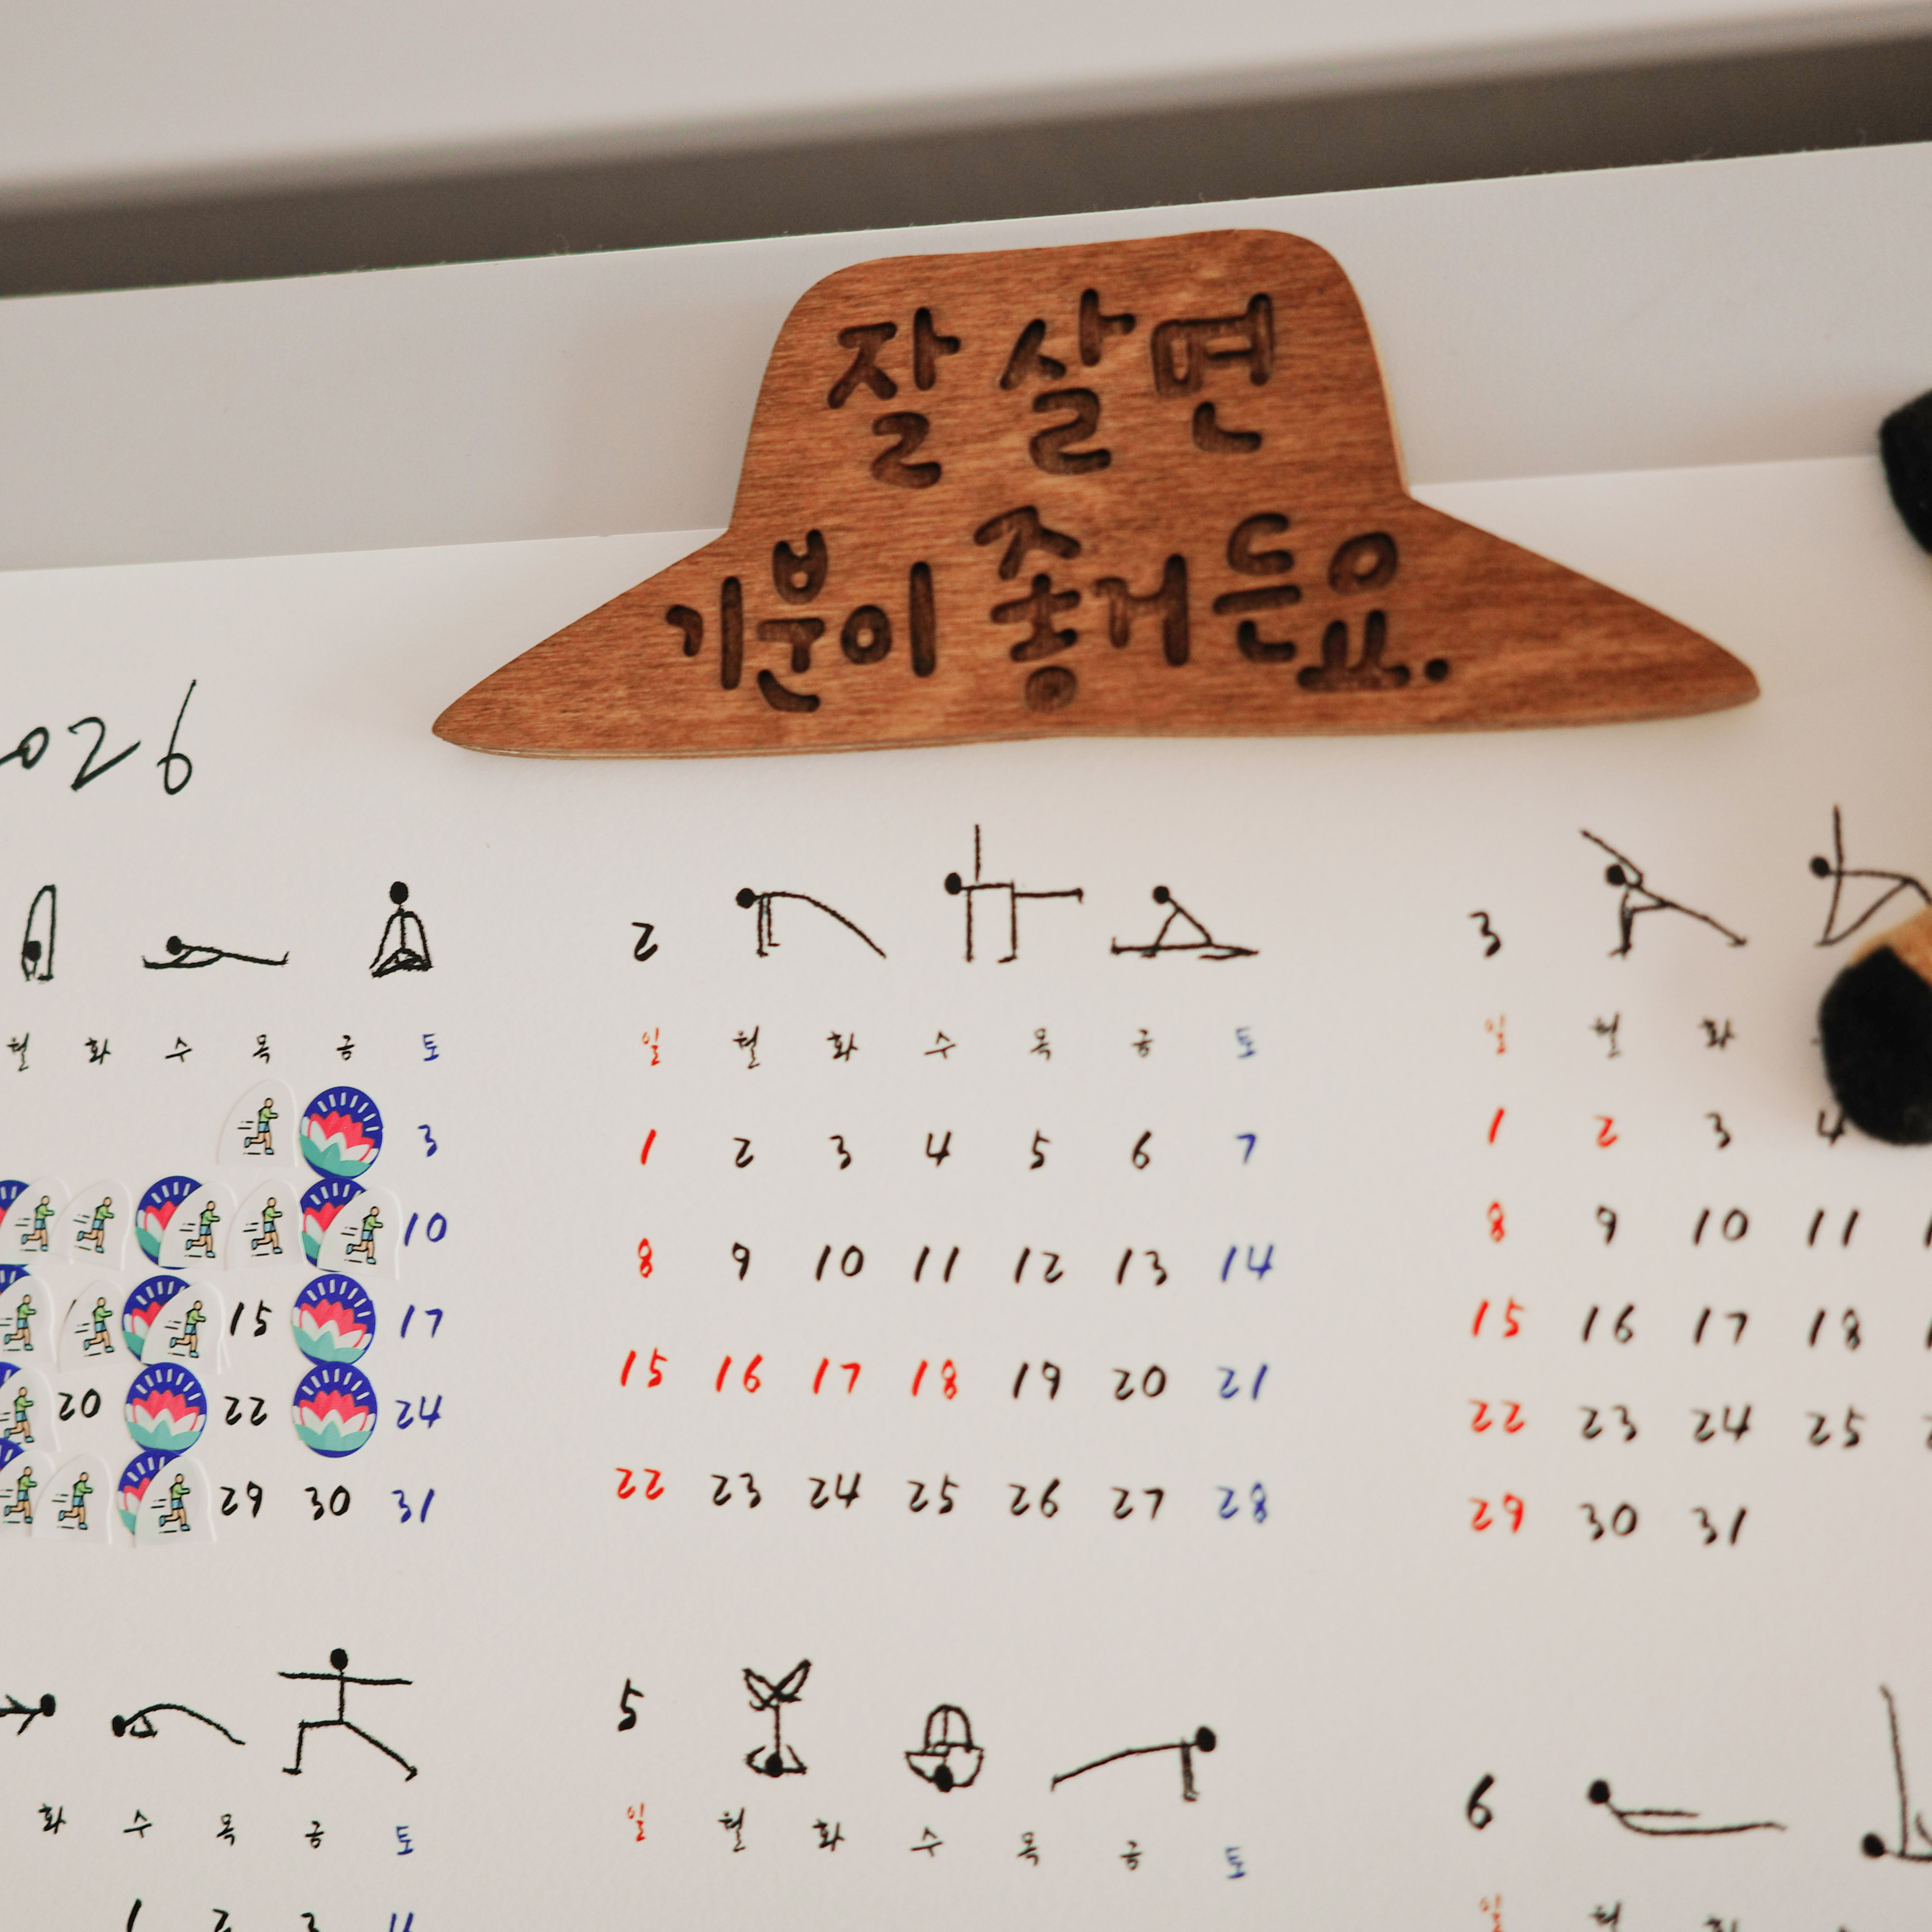 잘 살면
기분이 좋거든요.
2026
월 화 수 목 금 토
3
10
15 17
20 22 24
29 30 31
2
일 월 화 수 목 금 토
1 2 3 4 5 6 7
8 9 10 11 12 13 14
15 16 17 18 19 20 21
22 23 24 25 26 27 28
3
일 월 화
1 2 3 4
8 9 10 11
15 16 17 18
22 23 24 25
29 30 31
화 수 목 금 토
1 2 3 4
5
일 월 화 수 목 금 토
6
일 월 화